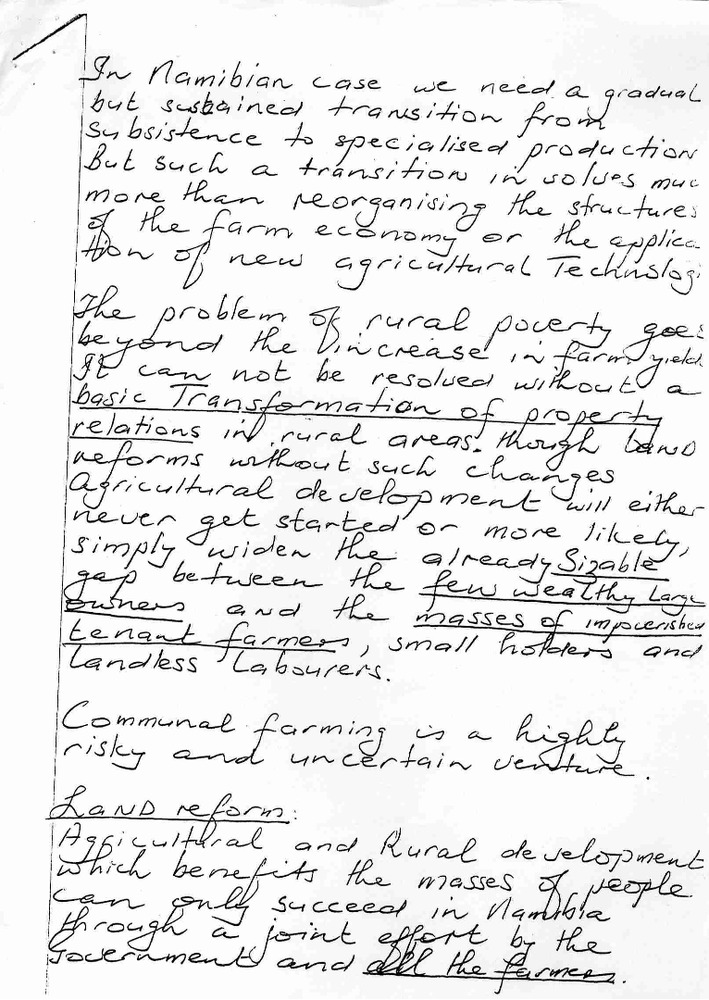 In Namibian case we need a gradual
but sustained transition from
subsistence to specialised production
But such a transition in volves muc
more than reorganising the structures
of the farm economy or the applica
tion of new agricultural Technologi
The problem of rural poverty goes
beyond the increase in farm yield
It can not be resolved without a
basic Transformation of property
relations in rural areas. through Land
reforms without such changes
Agricultural development will either
never get started or more likely,
simply widen the already Sizable
gap between the few wealthy Large
owners and the masses of impoverished
tenant farmers, small holders and
Landless Labourers.
Communal farming is a highly
risky and uncertain venture.
LAND reform:
Agricultural and Rural development
which benefits the masses of people
can only succeed in Namibia
through a joint effort by the
Government and all the farmers.